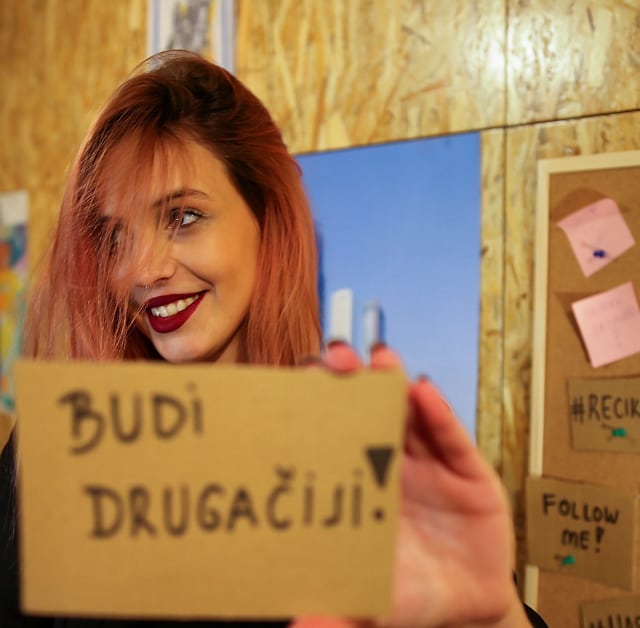 BUDi
DRUGAČiJi!
#RECIK
FOLLOW
ME!